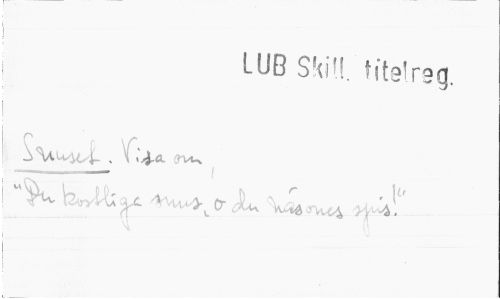 LUB Skill. titelreg.
Snuset. Visa om,
"Du kostliga snus, o du näsones spis!"